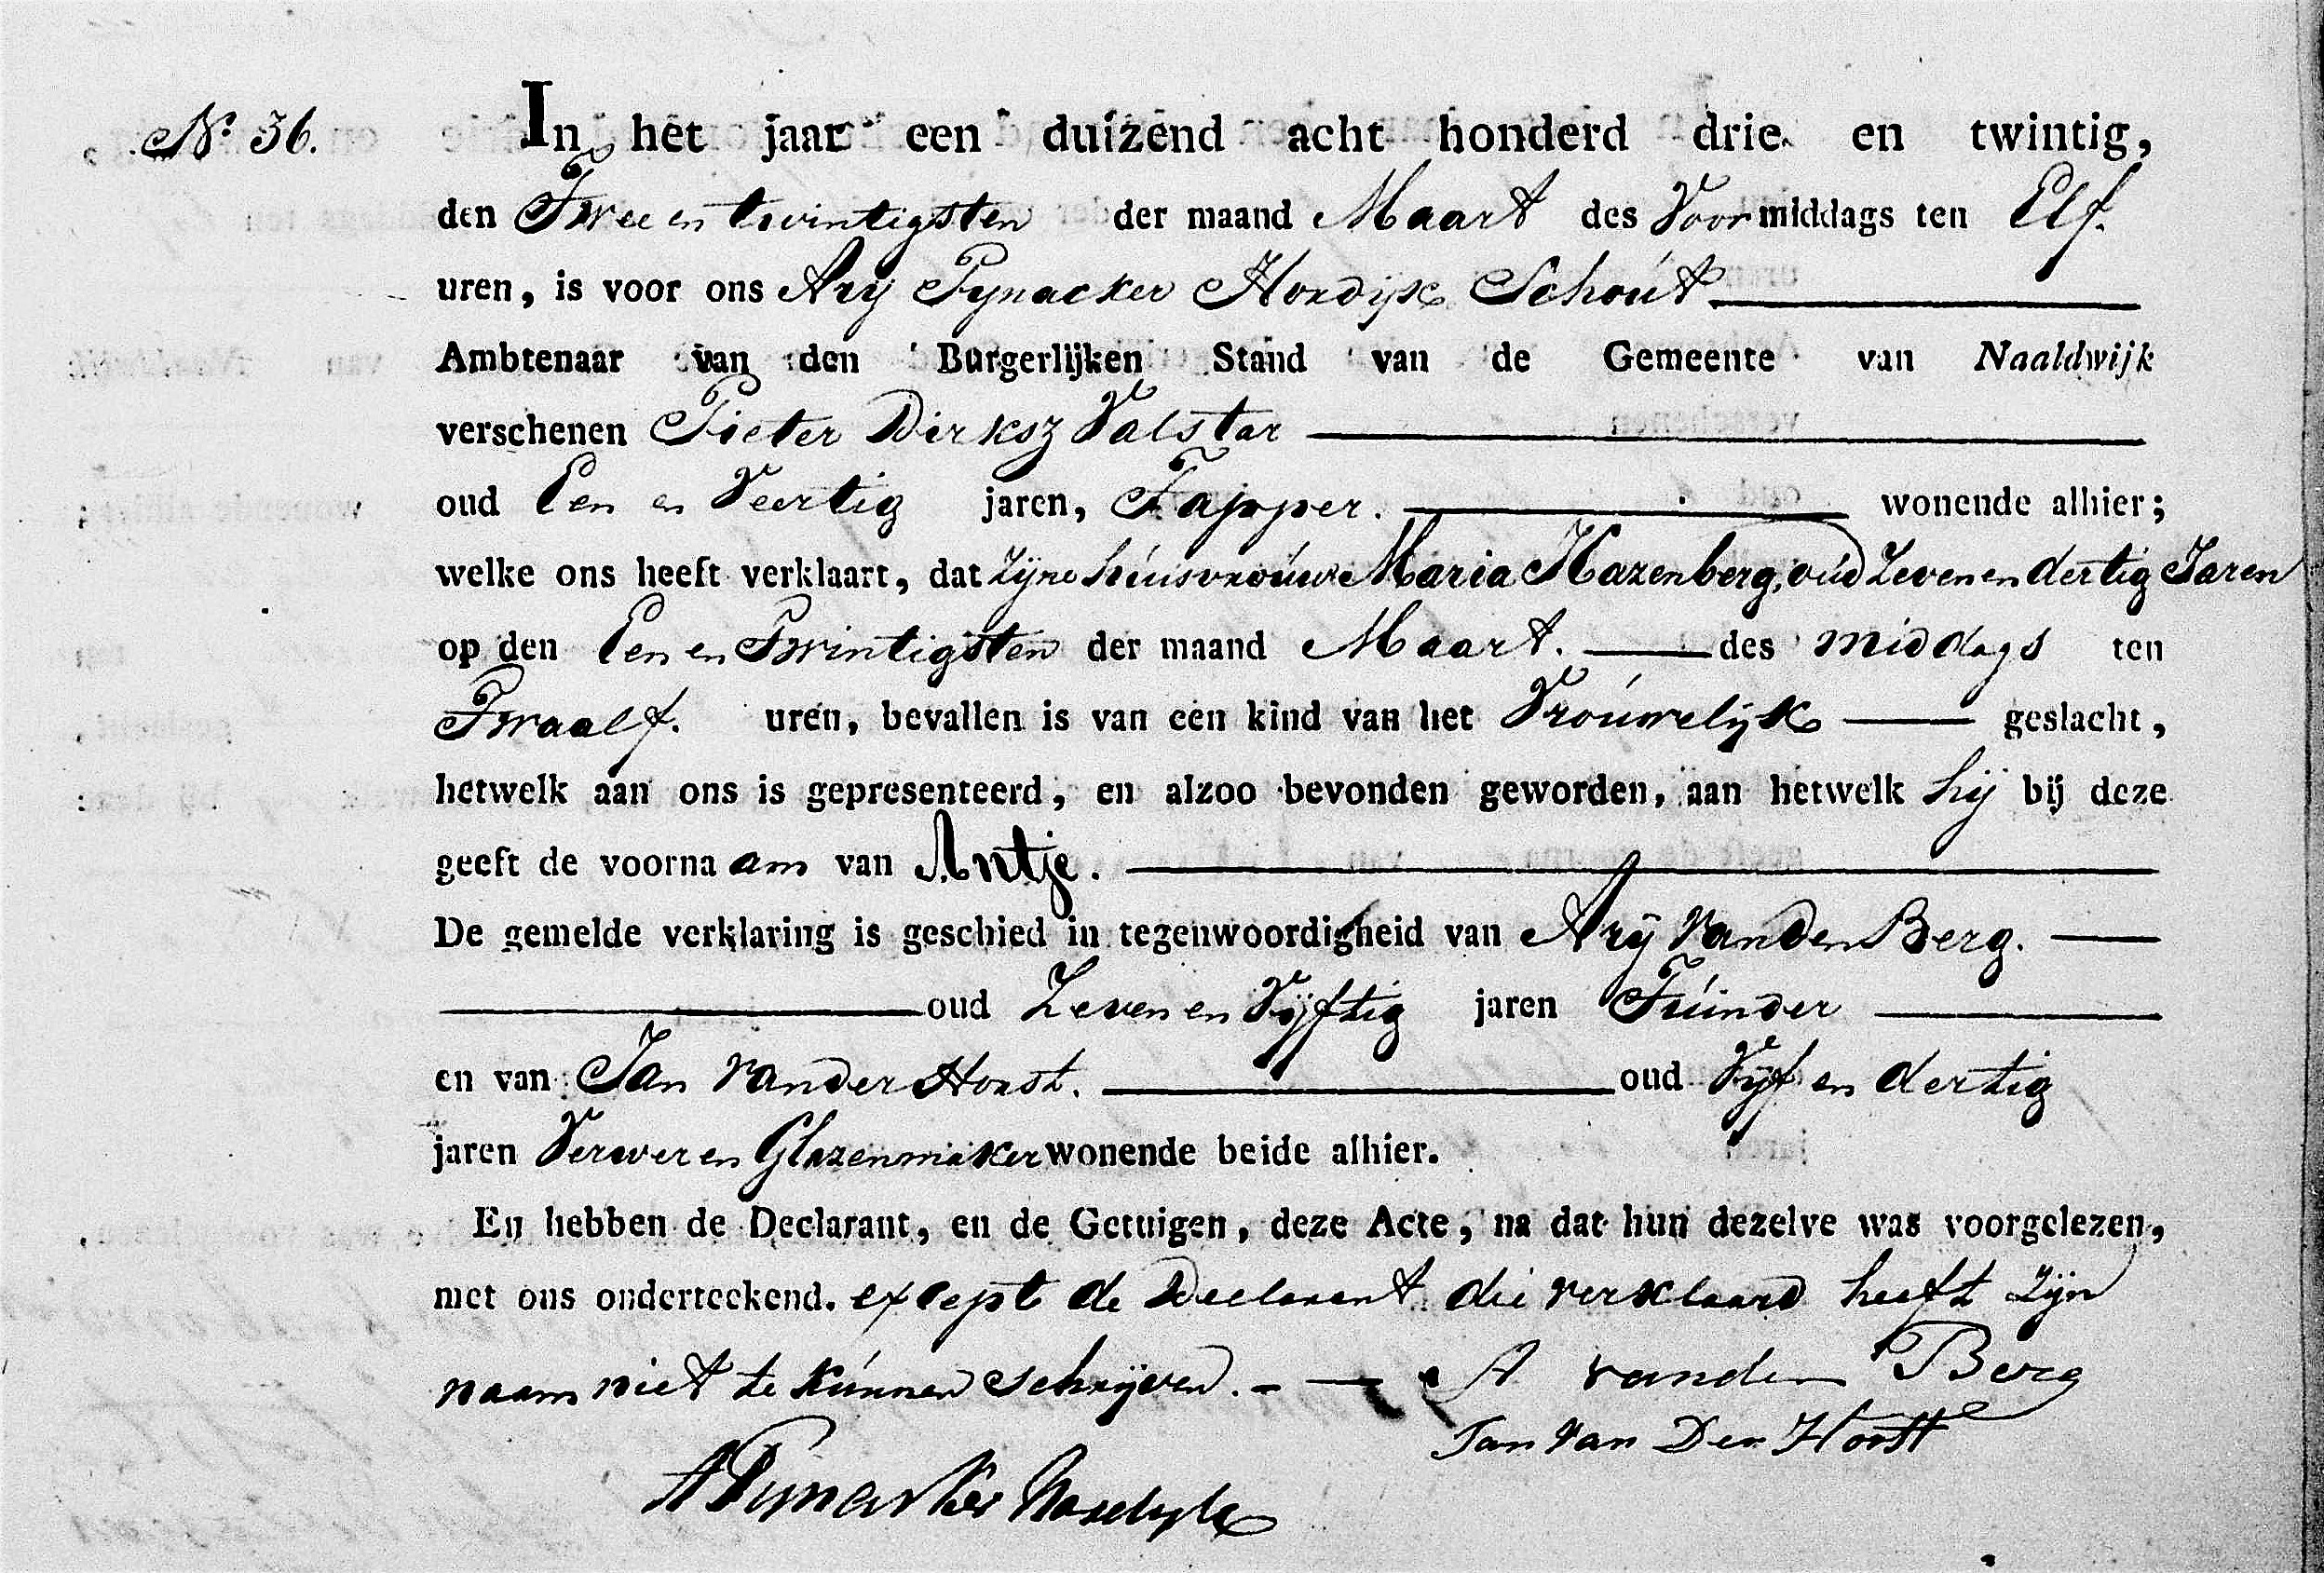 No. 36.
In het jaar een duizend acht honderd drie en twintig,
den Twee en twintigsten der maand Maart des Voormiddags ten Elf.
uren, is voor ons Arij Pynacker Hordijk Schout
Ambtenaar van den Burgerlijken Stand van de Gemeente van Naaldwijk
verschenen Pieter Dirksz Valstar
oud Een en Veertig jaren, Tapper. wonende alhier;
welke ons heeft verklaart, dat Zijne huisvrouw Maria Hazenberg, oud Zeven en dertig Jaren
op den Een en Twintigsten der maand Maart. des middags ten
Twaalf. uren, bevallen is van een kind van het Vrouwelijk geslacht,
hetwelk aan ons is gepresenteerd, en alzoo bevonden geworden, aan hetwelk hij bij deze
geeft de voornaam van Antje.
De gemelde verklaring is geschied in tegenwoordigheid van Arij van den Berg.
oud Zeven en Vijftig jaren Tuinder
en van Jan van der Horst. oud Vijf en dertig
jaren Verwer en Glazenmaker wonende beide alhier.
En hebben de Declarant, en de Getuigen, deze Acte, na dat hun dezelve was voorgelezen,
met ons onderteekend. except de Declarant die verklaard heeft Zijn
naam niet te kunnen schrijven. - — A vanden Berg
Jan Van Der Horst
A Pijnacker Hordijk